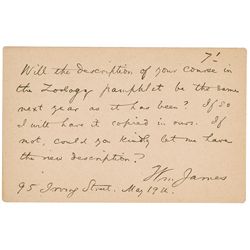 Will the description of your course in
the Zoology pamphlet be the same
next year as it has been? If so
I will have it copied in ours. If
not, could you kindly let me have
the new description?
Wm. James
95 Irving Street. May 19